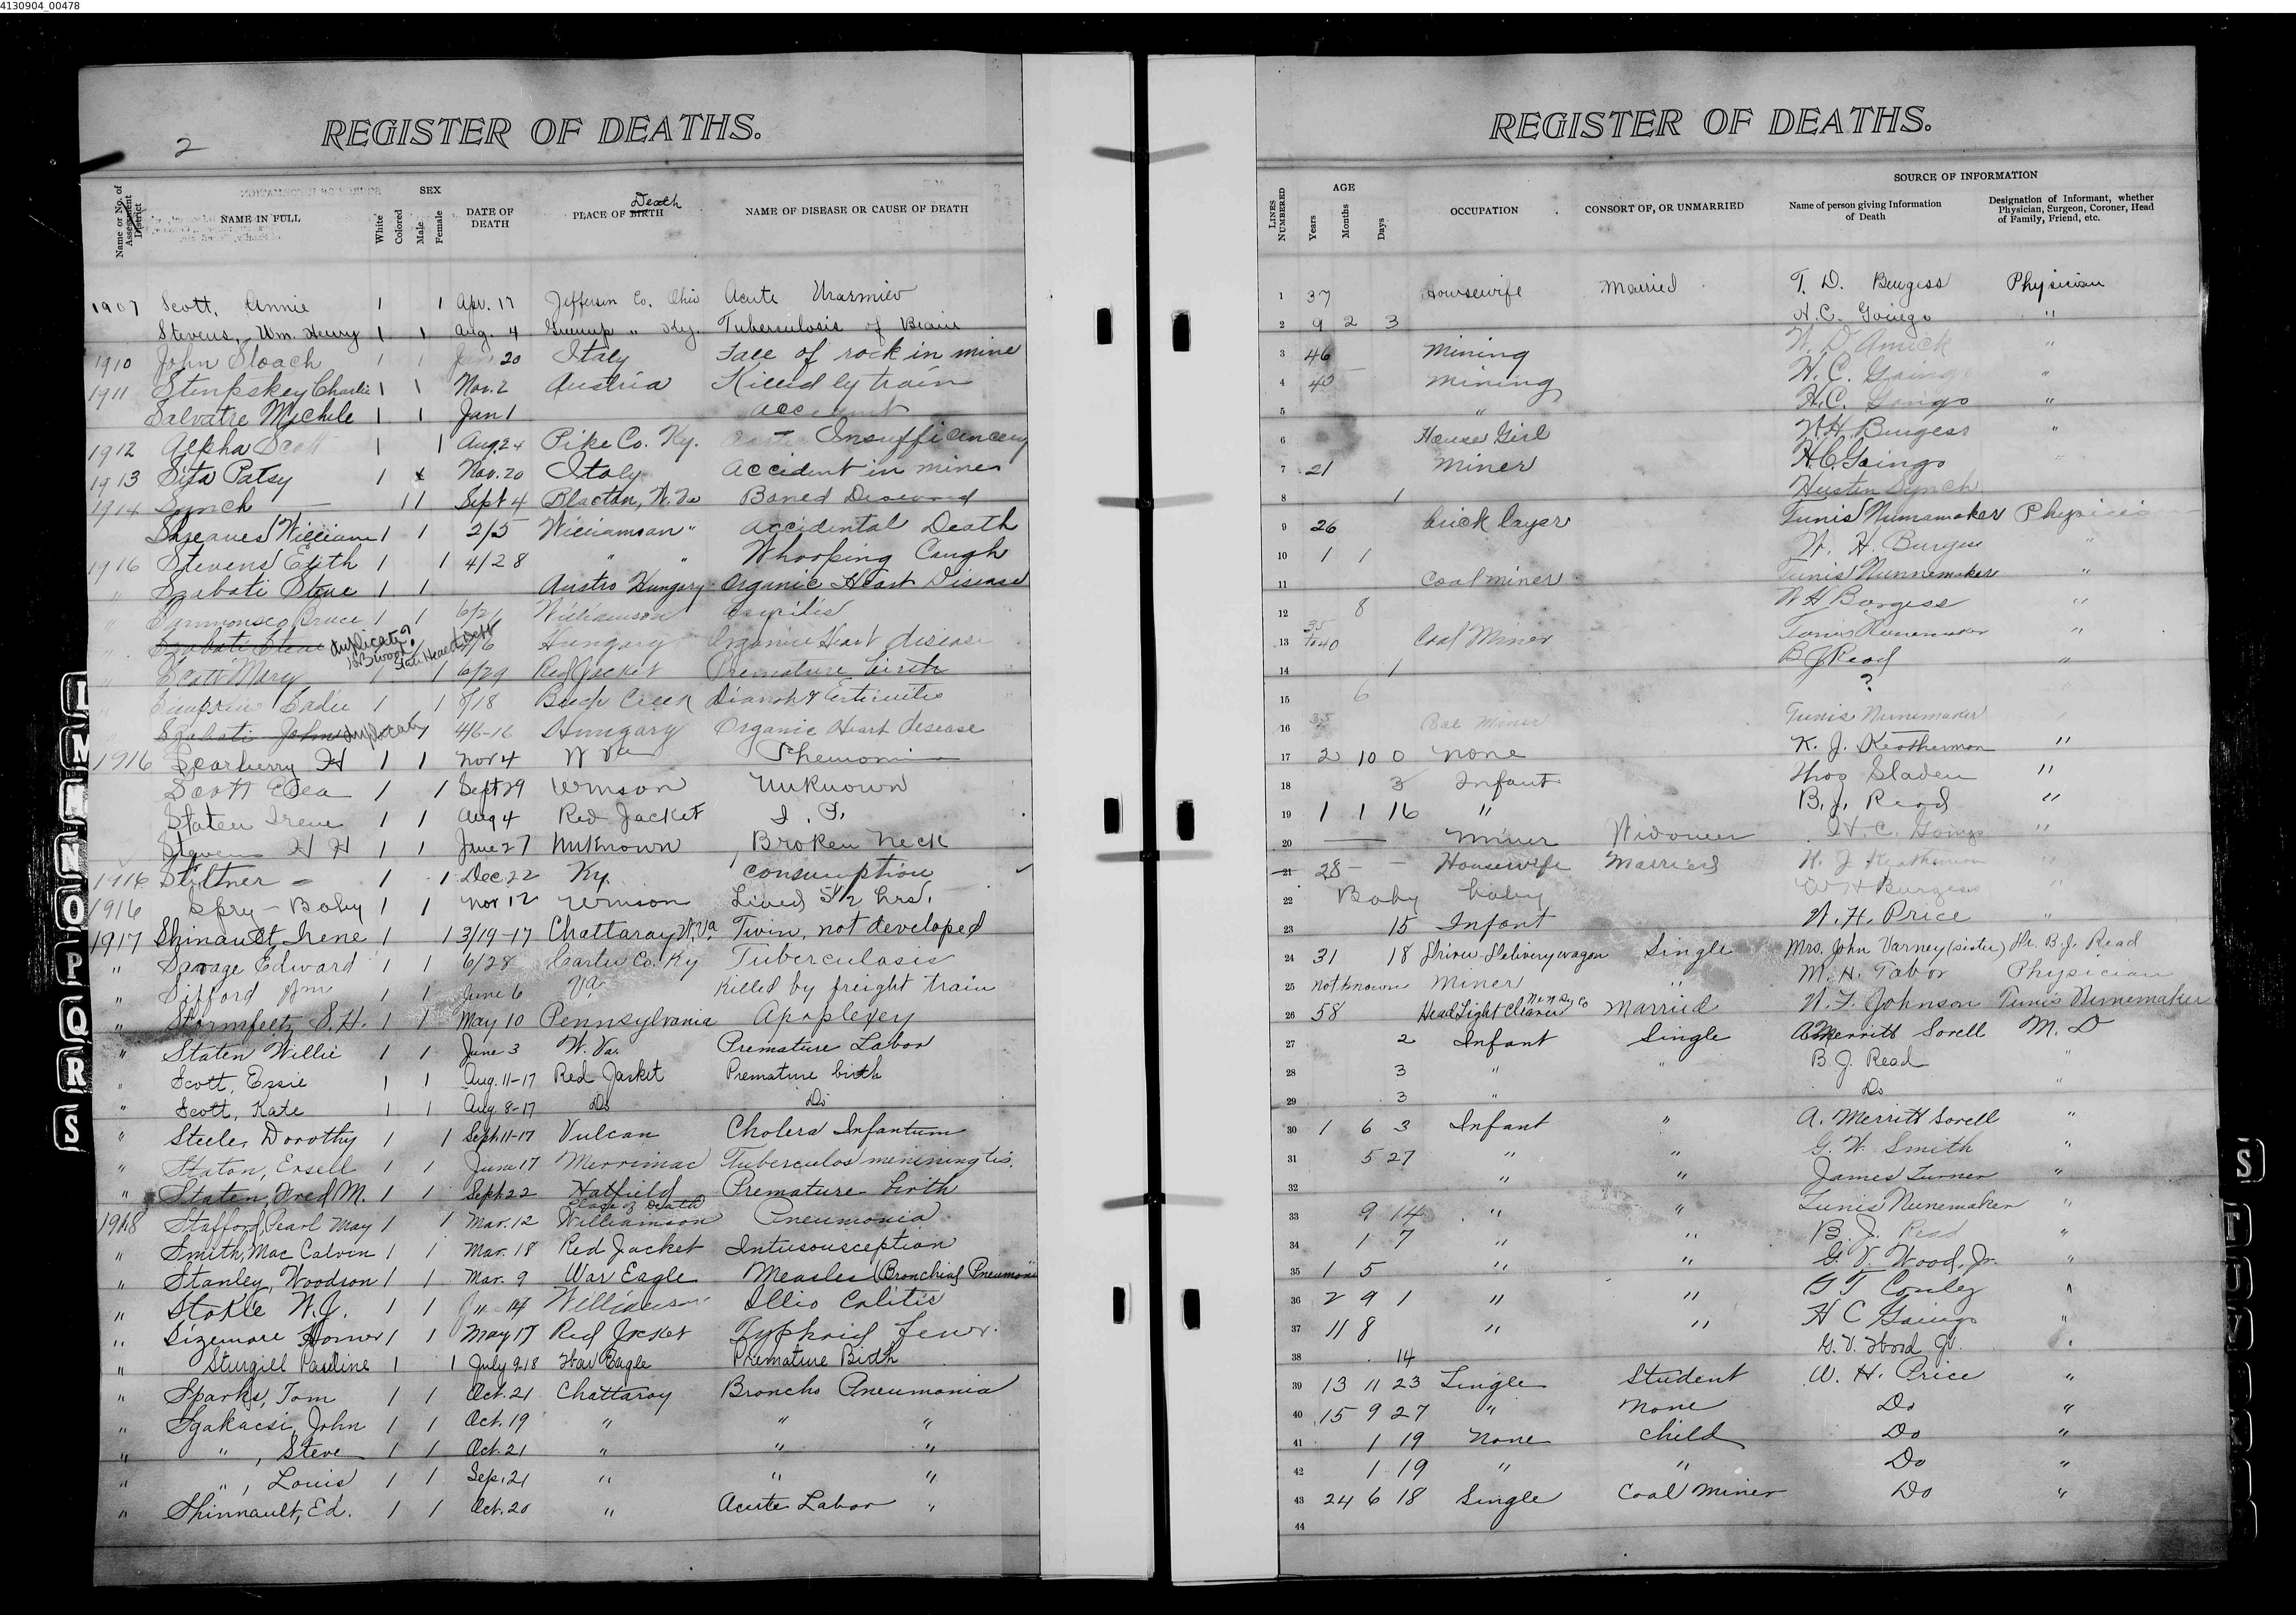 4130904_00478
2
REGISTER OF DEATHS.
Name or No. of Assessment District
NAME IN FULL
White
Colored
SEX
Male
Female
DATE OF DEATH
PLACE OF BIRTH Death
NAME OF DISEASE OR CAUSE OF DEATH
1907 Scott, Annie 1 1 Apr. 17 Jefferson Co. Ohio Acute
Stevens, Wm. Henry 1 1 Aug. 4 " Ky. Tuberculosis of
1910 John 1 1 20 Italy Fall of rock in mine
1911 Charlie 1 1 Nov. 2 Austria Killed by train
Salvatre Michele 1 1 Jan 1
1912 Alpha Scott 1 1 Aug 24 Pike Co. Ky. Insufficencey
1913 Sita Patsy 1 Nov. 20 Italy Accident in mines
1914 1 1 Sept 4 W. Va
William 1 1 2/5 Williamson " Accidental Death
1916 Stevens Edith 1 1 4/28 " " Whooping Cough
" Szabati Steve 1 1 Austro Hungary Organic Heart Disease
" Bruce 1 1 6/21 Williamson
" Szabati Steve duplicate? 4/6 Hungary Organic Heart disease
" Scott Mary 1 1 6/29 Red Jacket Premature birth
" 1 1 8/18 Creek
" Szabati John duplicate 1 4/6-16 Hungary Organic Heart disease
1916 Scarberry H 1 1 Nov 4 W Va
Scott 1 1 Sept 29 Wmson Unknown
Staten Irene 1 1 Aug 4 Red Jacket
H H 1 1 June 27 Unknown Broken neck
1916 Stiltner - 1 1 Dec 22 Ky. Consumption
1916 Spry - Baby 1 1 Nov 12 Wmson Lived 5 1/2 hrs.
1917 Shinault, Irene 1 1 3/19-17 Chattaray W. Va. Twin, not developed
" Savage Edward 1 1 6/28 Carter Co. Ky Tuberculosis
" Sifford Jim 1 1 June 6 Va Killed by freight train
" Stormfeltz, S. H. 1 1 May 10 Pennsylvania Apoplexey
" Staten Willie 1 1 June 3 W. Va. Premature Labor
" Scott, Essie 1 1 Aug. 11-17 Red Jacket Premature birth
" Scott, Kate 1 1 Aug. 8-17 Do Do
" Steele, Dorothy 1 1 Sept. 11-17 Vulcan Cholera Infantum
" Staton, Ersell 1 1 June 17 Merrimac
" Staten, Fred M. 1 1 Sept 22 Hatfield Premature birth
Place of Death
1918 Stafford, Pearl May 1 1 Mar. 12 Williamson Pneumonia
" Smith, Mac Calvin 1 1 Mar. 18 Red Jacket Intusousception
" Stanley, Woodson 1 1 Mar. 9 War Eagle Measles (Bronchial Pneumonia
" Stokle W. J. 1 1 14 Williamson Illio Colitis
" Sizemore Homer 1 1 May 17 Red Jacket Typhoid fever.
" Sturgill Pauline 1 1 July 9 18 War Eagle Premature Birth
" Sparks, Tom 1 1 Oct. 21 Chattaroy Broncho Pneumonia
" Sgakacsi, John 1 1 Oct. 19 " " "
" " , Steve 1 1 Oct. 21 " " "
" " , Louis 1 1 Sep. 21 " " "
" Shinnault, Ed. 1 1 Oct. 20 " Acute Labor "
REGISTER OF DEATHS.
LINES NUMBERED
AGE
Years
Months
Days
OCCUPATION
CONSORT OF, OR UNMARRIED
SOURCE OF INFORMATION
Name of person giving Information of Death
Designation of Informant, whether Physician, Surgeon, Coroner, Head of Family, Friend, etc.
1 37 Housewife Married T. D. Burgess Physician
2 9 2 3 H. C. Goings "
3 46 Mining W. D. Amick "
4 40 Mining H. C. Goings "
5 " H. C. Goings "
6 House Girl W. H. Burgess "
7 21 Miner H. C. Goings "
8 1
9 26 brick layer Tunis Nunamaker
10 1 1 W. H. Burgess "
11 Coal miner Tunis Nunnemaker "
12 8 W H Burgess "
13 35 to 40 Coal Miner Tunis Nunemaker "
14 1 B J Read "
15 6 ?
16 35 Coal Miner Tunis Nunemaker
17 2 10 0 none K. J. "
18 3 Infant Thos Sladen "
19 1 1 16 " B. J. Read "
20 Miner Widower H. C. Goings "
21 28 - - Housewife Married "
22 Baby baby W H Burgess "
23 15 Infant W. H. Price "
24 31 18 Driver Delivery wagon Single Mrs. John Varney (sister) Dr. B. J. Read
25 not known Miner " M. H. Tabor Physician
26 58 Head Light Cleaner N & W Ry Co Married W. F. Johnson Tunis Nunemaker
27 2 Infant Single A Merritt Sorell M. D
28 3 " " B. J. Read "
29 3 " Do "
30 1 6 3 Infant " A. Merritt Sorell "
31 5 27 " " G. W. Smith "
32 " " James Turner "
33 9 14 " " Tunis Nunemaker "
34 1 7 " " B. J. Read "
35 1 5 " " G. V. Wood, Jr. "
36 2 9 1 " " G T Conley "
37 11 8 " " H C Goings "
38 14 G. V. Wood Jr. "
39 13 11 23 Single Student W. H. Price "
40 15 9 27 " None Do "
41 1 19 None Child Do "
42 1 19 " " Do "
43 24 6 18 Single Coal Miner Do "
44
L
M
N
O
P
Q
R
S
S
T
U
V